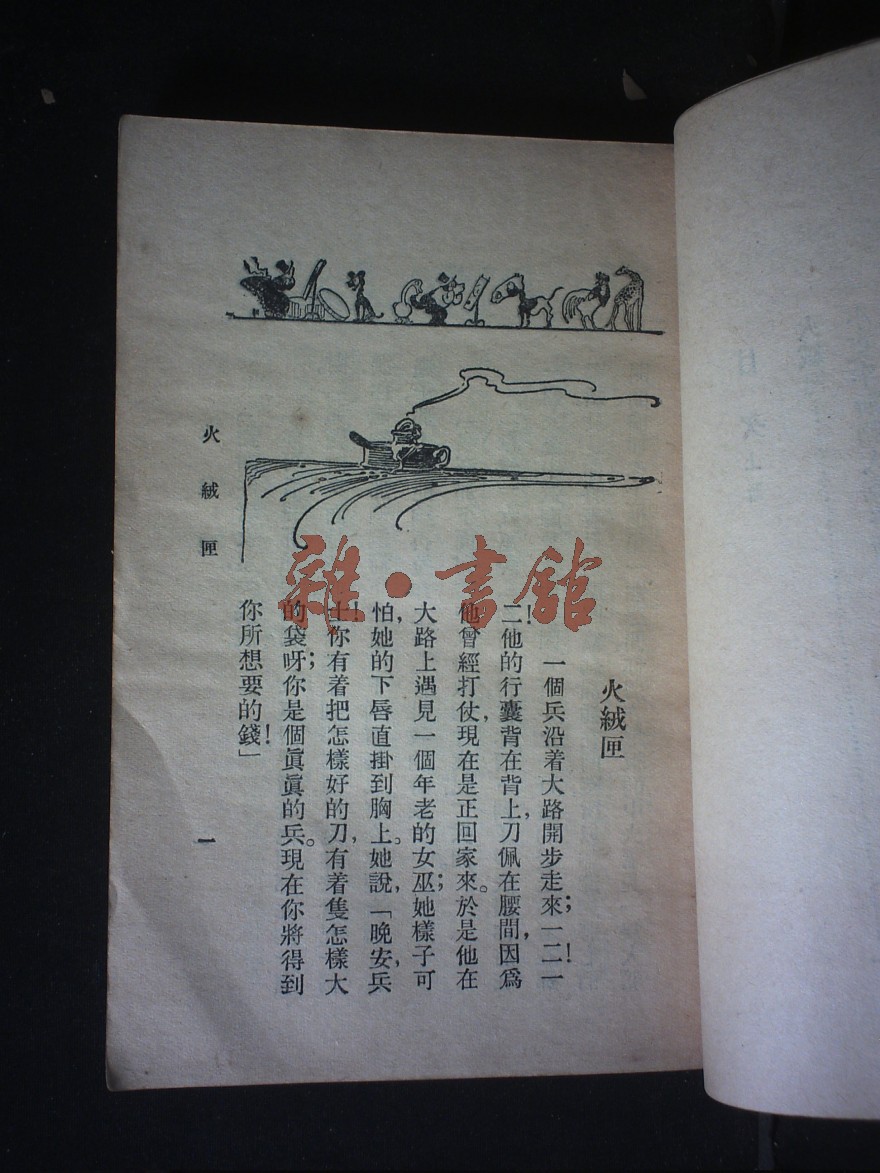 火絨匣
一個兵沿着大路開步走來；一二！一
二！他的行囊背在背上，刀佩在腰間，因爲
他曾經打仗，現在是正回家來。於是他在
大路上遇見一個年老的女巫；她樣子可
怕，她的下唇直掛到胸上。她說，「晚安，兵
士！你有着把怎樣好的刀，有着隻怎樣大
的袋呀；你是個眞眞的兵。現在你將得到
你所想要的錢！」
火絨匣
一
雜·書館